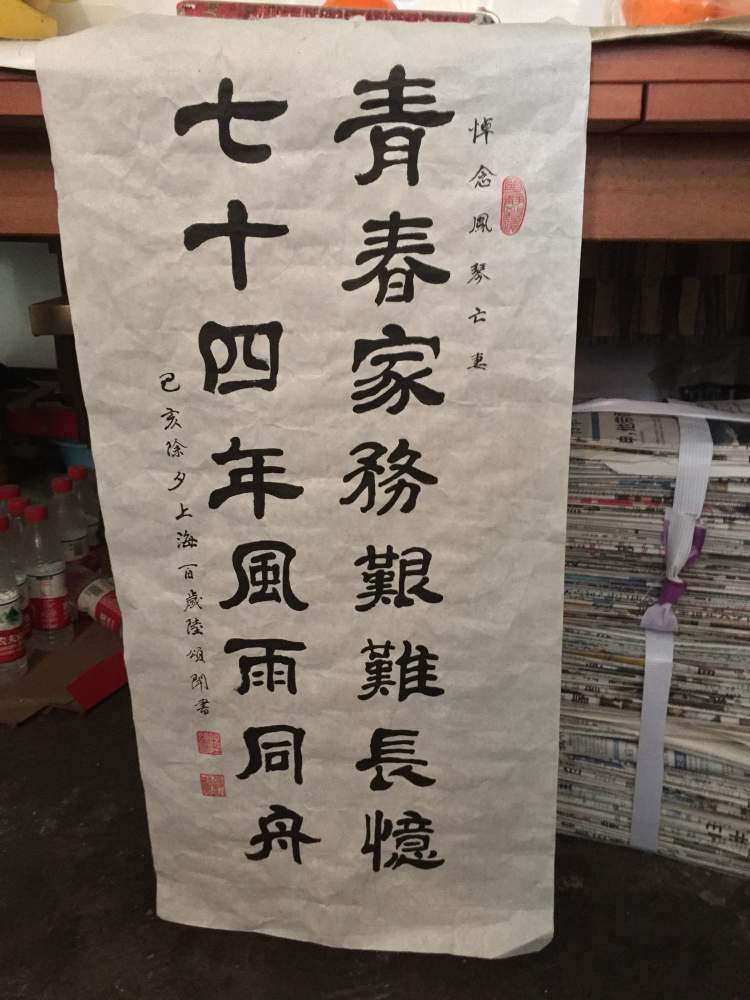 悼念鳳琴亡妻
青春家務艱難長憶
七十四年風雨同舟
己亥除夕上海百歲陸頌聞書